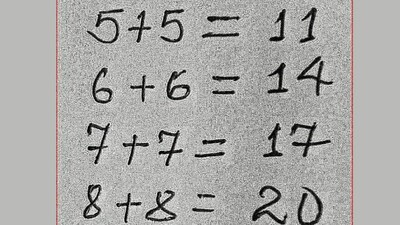 5+5 = 11
6+6 = 14
7+7 = 17
8+8 = 20